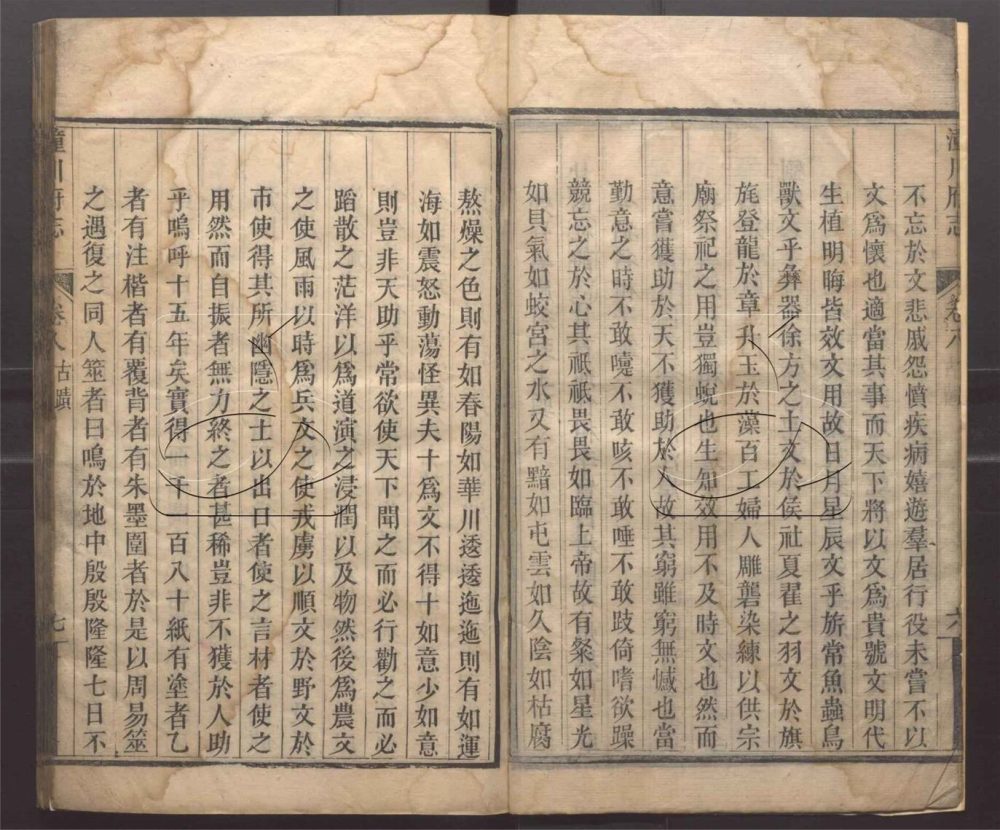 潼川府志
卷八
六
不忘於文悲戚怨憤疾病嬉遊羣居行役未嘗不以
文爲懷也適當其事而天下將以文爲貴號文明代
生植明晦皆效文用故日月星辰文乎旂常魚蟲鳥
獸文乎彝器徐方之土文於侯社夏翟之羽文於旗
旄登龍於章升玉於藻百工婦人雕礱染練以供宗
廟祭祀之用豈獨蛻也生知效用不及時文也然而
意嘗獲助於天不獲助於人故其窮雖窮無憾也當
勤意之時不敢嚏不敢咳不敢唾不敢跂倚嗜欲躁
競忘之於心其祇祇畏畏如臨上帝故有粲如星光
如貝氣如蛟宮之水又有黯如屯雲如久陰如枯腐
熬燥之色則有如春陽如華川逶逶迤迤則有如運
海如震怒動蕩怪異夫十爲文不得十如意少如意
則豈非天助乎常欲使天下聞之而必行勸之而必
蹈散之茫洋以爲道演之浸潤以及物然後爲農文
之使風雨以時爲兵文之使戎虜以順文於野文於
市使得其所幽隱之士以出日者使之言材者使之
用然而自振者無力終之者甚稀豈非不獲於人助
乎嗚呼十五年矣實得一千一百八十紙有塗者乙
者有注楷者有覆背者有朱墨圍者於是以周易筮
之遇復之同人筮者曰鳴於地中殷殷隆隆七日不
潼川府志
卷八
古蹟
七